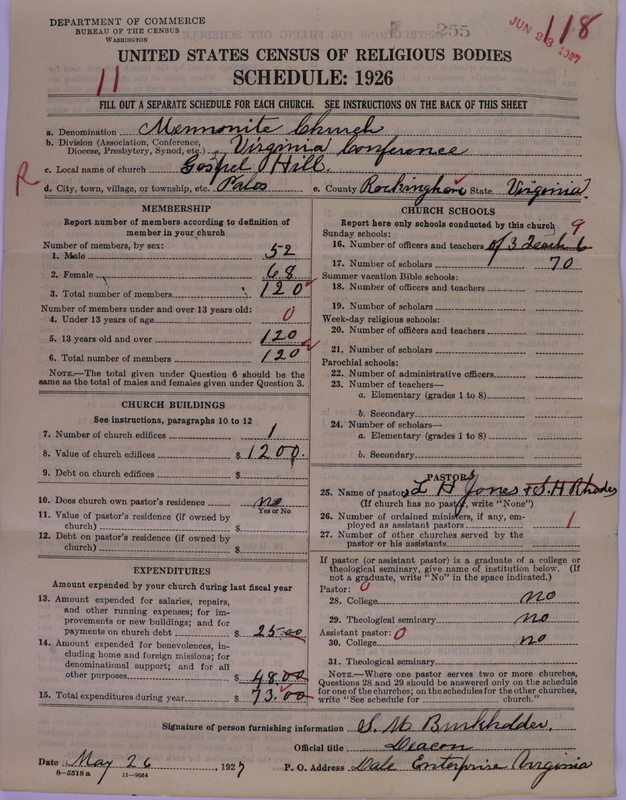 DEPARTMENT OF COMMERCE
BUREAU OF THE CENSUS
WASHINGTON
255
JUN 23 1927
118
UNITED STATES CENSUS OF RELIGIOUS BODIES
SCHEDULE: 1926
11
FILL OUT A SEPARATE SCHEDULE FOR EACH CHURCH. SEE INSTRUCTIONS ON THE BACK OF THIS SHEET
a. Denomination Mennonite Church
b. Division (Association, Conference, Diocese, Presbytery, Synod, etc.) Virginia Conference
c. Local name of church Gospel Hill.
R
d. City, town, village, or township, etc. Palos e. County Rockingham State Virginia.
MEMBERSHIP
Report number of members according to definition of
member in your church
Number of members, by sex:
1. Male 52
2. Female 68
3. Total number of members 120
Number of members under and over 13 years old:
4. Under 13 years of age 0
5. 13 years old and over 120
6. Total number of members 120
NOTE.—The total given under Question 6 should be
same as the total of males and females given under Question 3.
CHURCH BUILDINGS
See instructions, paragraphs 10 to 12
7. Number of church edifices 1
8. Value of church edifices $ 1200.
9. Debt on church edifices $
10. Does church own pastor's residence no
Yes or No
11. Value of pastor's residence (if owned by
church) $
12. Debt on pastor's residence (if owned by
church) $
EXPENDITURES
Amount expended by your church during last fiscal year
13. Amount expended for salaries, repairs,
and other running expenses; for im-
provements or new buildings; and for
payments on church debt $ 25.00
14. Amount expended for benevolences,
including home and foreign missions; for
denominational support; and for all
other purposes $ 48.00
15. Total expenditures during year $ 73.00
CHURCH SCHOOLS
Report here only schools conducted by this church
Sunday schools: 9
16. Number of officers and teachers of 3 Teach 6
17. Number of scholars 70
Summer vacation Bible schools:
18. Number of officers and teachers
19. Number of scholars
Week-day religious schools:
20. Number of officers and teachers
21. Number of scholars
Parochial schools:
22. Number of administrative officers
23. Number of teachers—
a. Elementary (grades 1 to 8)
b. Secondary
24. Number of scholars—
a. Elementary (grades 1 to 8)
b. Secondary
PASTORS
25. Name of pastors L H Jones + S. H Rhodes
(If church has no pastor, write "None")
26. Number of ordained ministers, if any, em-
ployed as assistant pastors 1
27. Number of other churches served by the
pastor or his assistants
If pastor (or assistant pastor) is a graduate of a college or
theological seminary, give name of institution below. (If
not a graduate, write "No" in the space indicated.)
Pastor: 0
28. College no
29. Theological seminary no
Assistant pastor: 0
30. College no
31. Theological seminary
NOTE.—Where one pastor serves two or more churches,
Questions 28 and 29 should be answered only on the schedule
for one of the churches; on the schedules for the other churches,
write "See schedule for church."
Signature of person furnishing information S. M. Burkholder.
Official title Deacon
Date May 26, 1927 P. O. Address Dale Enterprise Virginia
8—5318a 11—9054